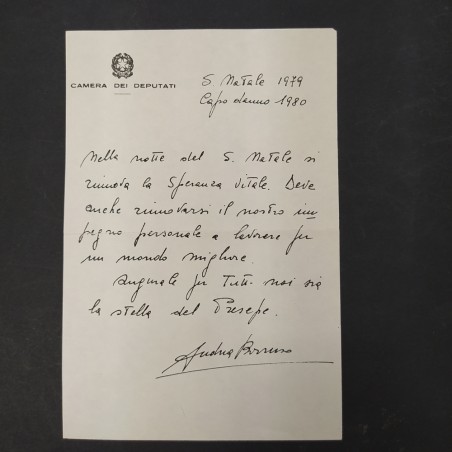 CAMERA DEI DEPUTATI
S. Natale 1979
Capodanno 1980
Nella notte del S. Natale si
rinnova la Speranza Vitale. Deve
anche rinnovarsi il nostro im
pegno personale a lavorare per
un mondo migliore.
Augurale per Tutti noi sia
la stella del Presepe.
Andrea Borruso